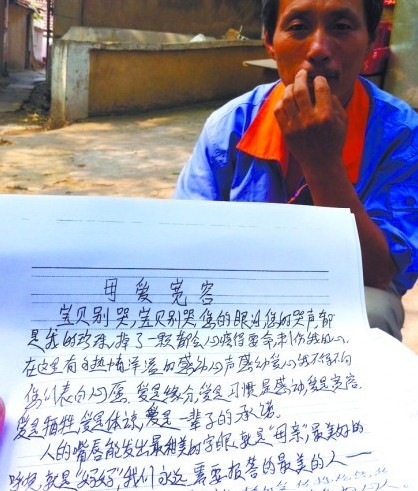 母爱宽容
宝贝别哭,宝贝别哭,您的眼泪,您的哭声都
是我的珍珠,掉了一颗都会心疼得要命,刺伤我的心。
在这里有多热情洋溢的感动心声感动爱心我不得不向
您们表白心愿。爱是缘分,爱是习惯,是感动,爱是宽容。
爱是牺牲,爱是体谅,爱是一辈子的承诺。
人的嘴唇能发出最甜美的字眼,就是"母亲"最美好的
呼唤,就是"好好",我们永远需要报答的最美的人——